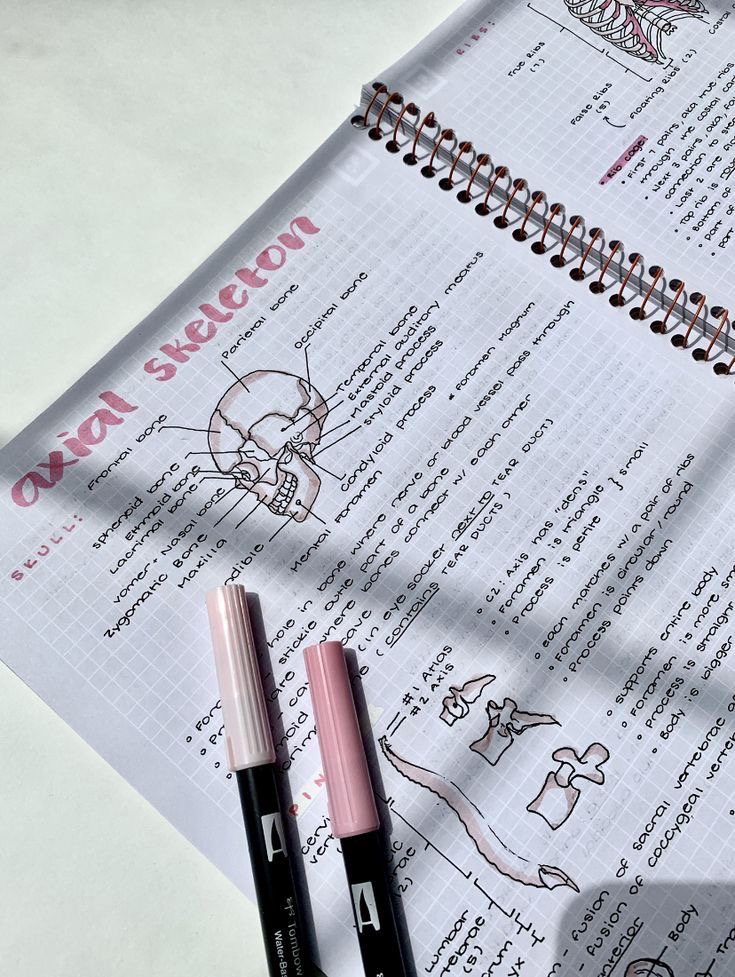 RIBS:
True Ribs
(7)
False Ribs
(5)
Floating Ribs (2)
Costal
• Rib cage:
• First 7 pairs, aka true ribs
through the costal
• Next 3 pairs, aka, fa
connection to ste
• Last 2 are flo
• Top rib is
• Bottom of
• Part of
• Part
axial skeleton
SKULL:
Parietal bone
Occipital bone
Temporal bone
External auditory meatus
Mastoid process
Styloid process
Condyloid process
* Foramen Magnum
Frontal bone
Sphenoid bone
Ethmoid bone
Lacrimal bone
Vomer + Nasal bone
Zygomatic Bone
Maxilla
dible
Mental Foramen
hole in bone where nerve or blood vessel pass through
stickie outie part of a bone
where bones connect w/ each other
(in eye socket next to TEAR DUCTS)
(contains TEAR DUCTS)
• C2: Axis has "dens"
• Foramen is triangle } small
• Process is petite
• each matches w/ a pair of ribs
• Foramen is circular/round
• Process points down
• Supports entire body
• Foramen is more sm
• Process is straight
• Body is bigger
#1 Atlas
#2 Axis
PIN
cervi
vert
Lumbar
(5)
- fusion of sacral vertebrae
- fusion of coccygeal verteb
Body
Tombow
Water-Bas